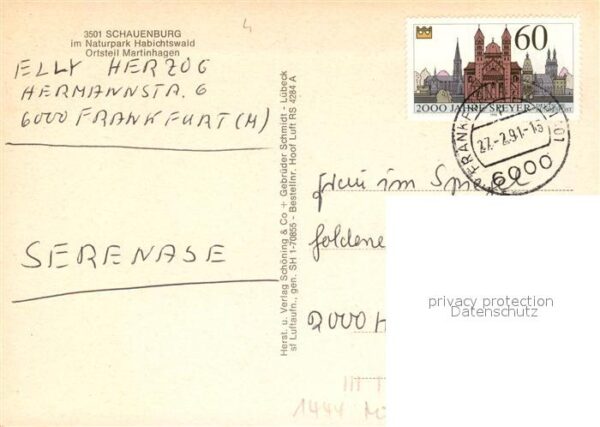 3501 SCHAUENBURG
im Naturpark Habichtswald
Ortsteil Martinhagen
ELLY HERZOG
HERMANNSTR. 6
6000 FRANKFURT (M)
SERENASE
Herst. u. Verlag Schöning & Co + Gebrüder Schmidt - Lübeck
sf Luftaufn., gen. SH 1-70855 - Bestellnr. Hoof Luft RS 4284 A
60
2000 JAHRE SPEYER
FRANKF
27.-2.91-15
6000
frau im Spiegel
goldene
2000 H
privacy protection
Datenschutz
1444